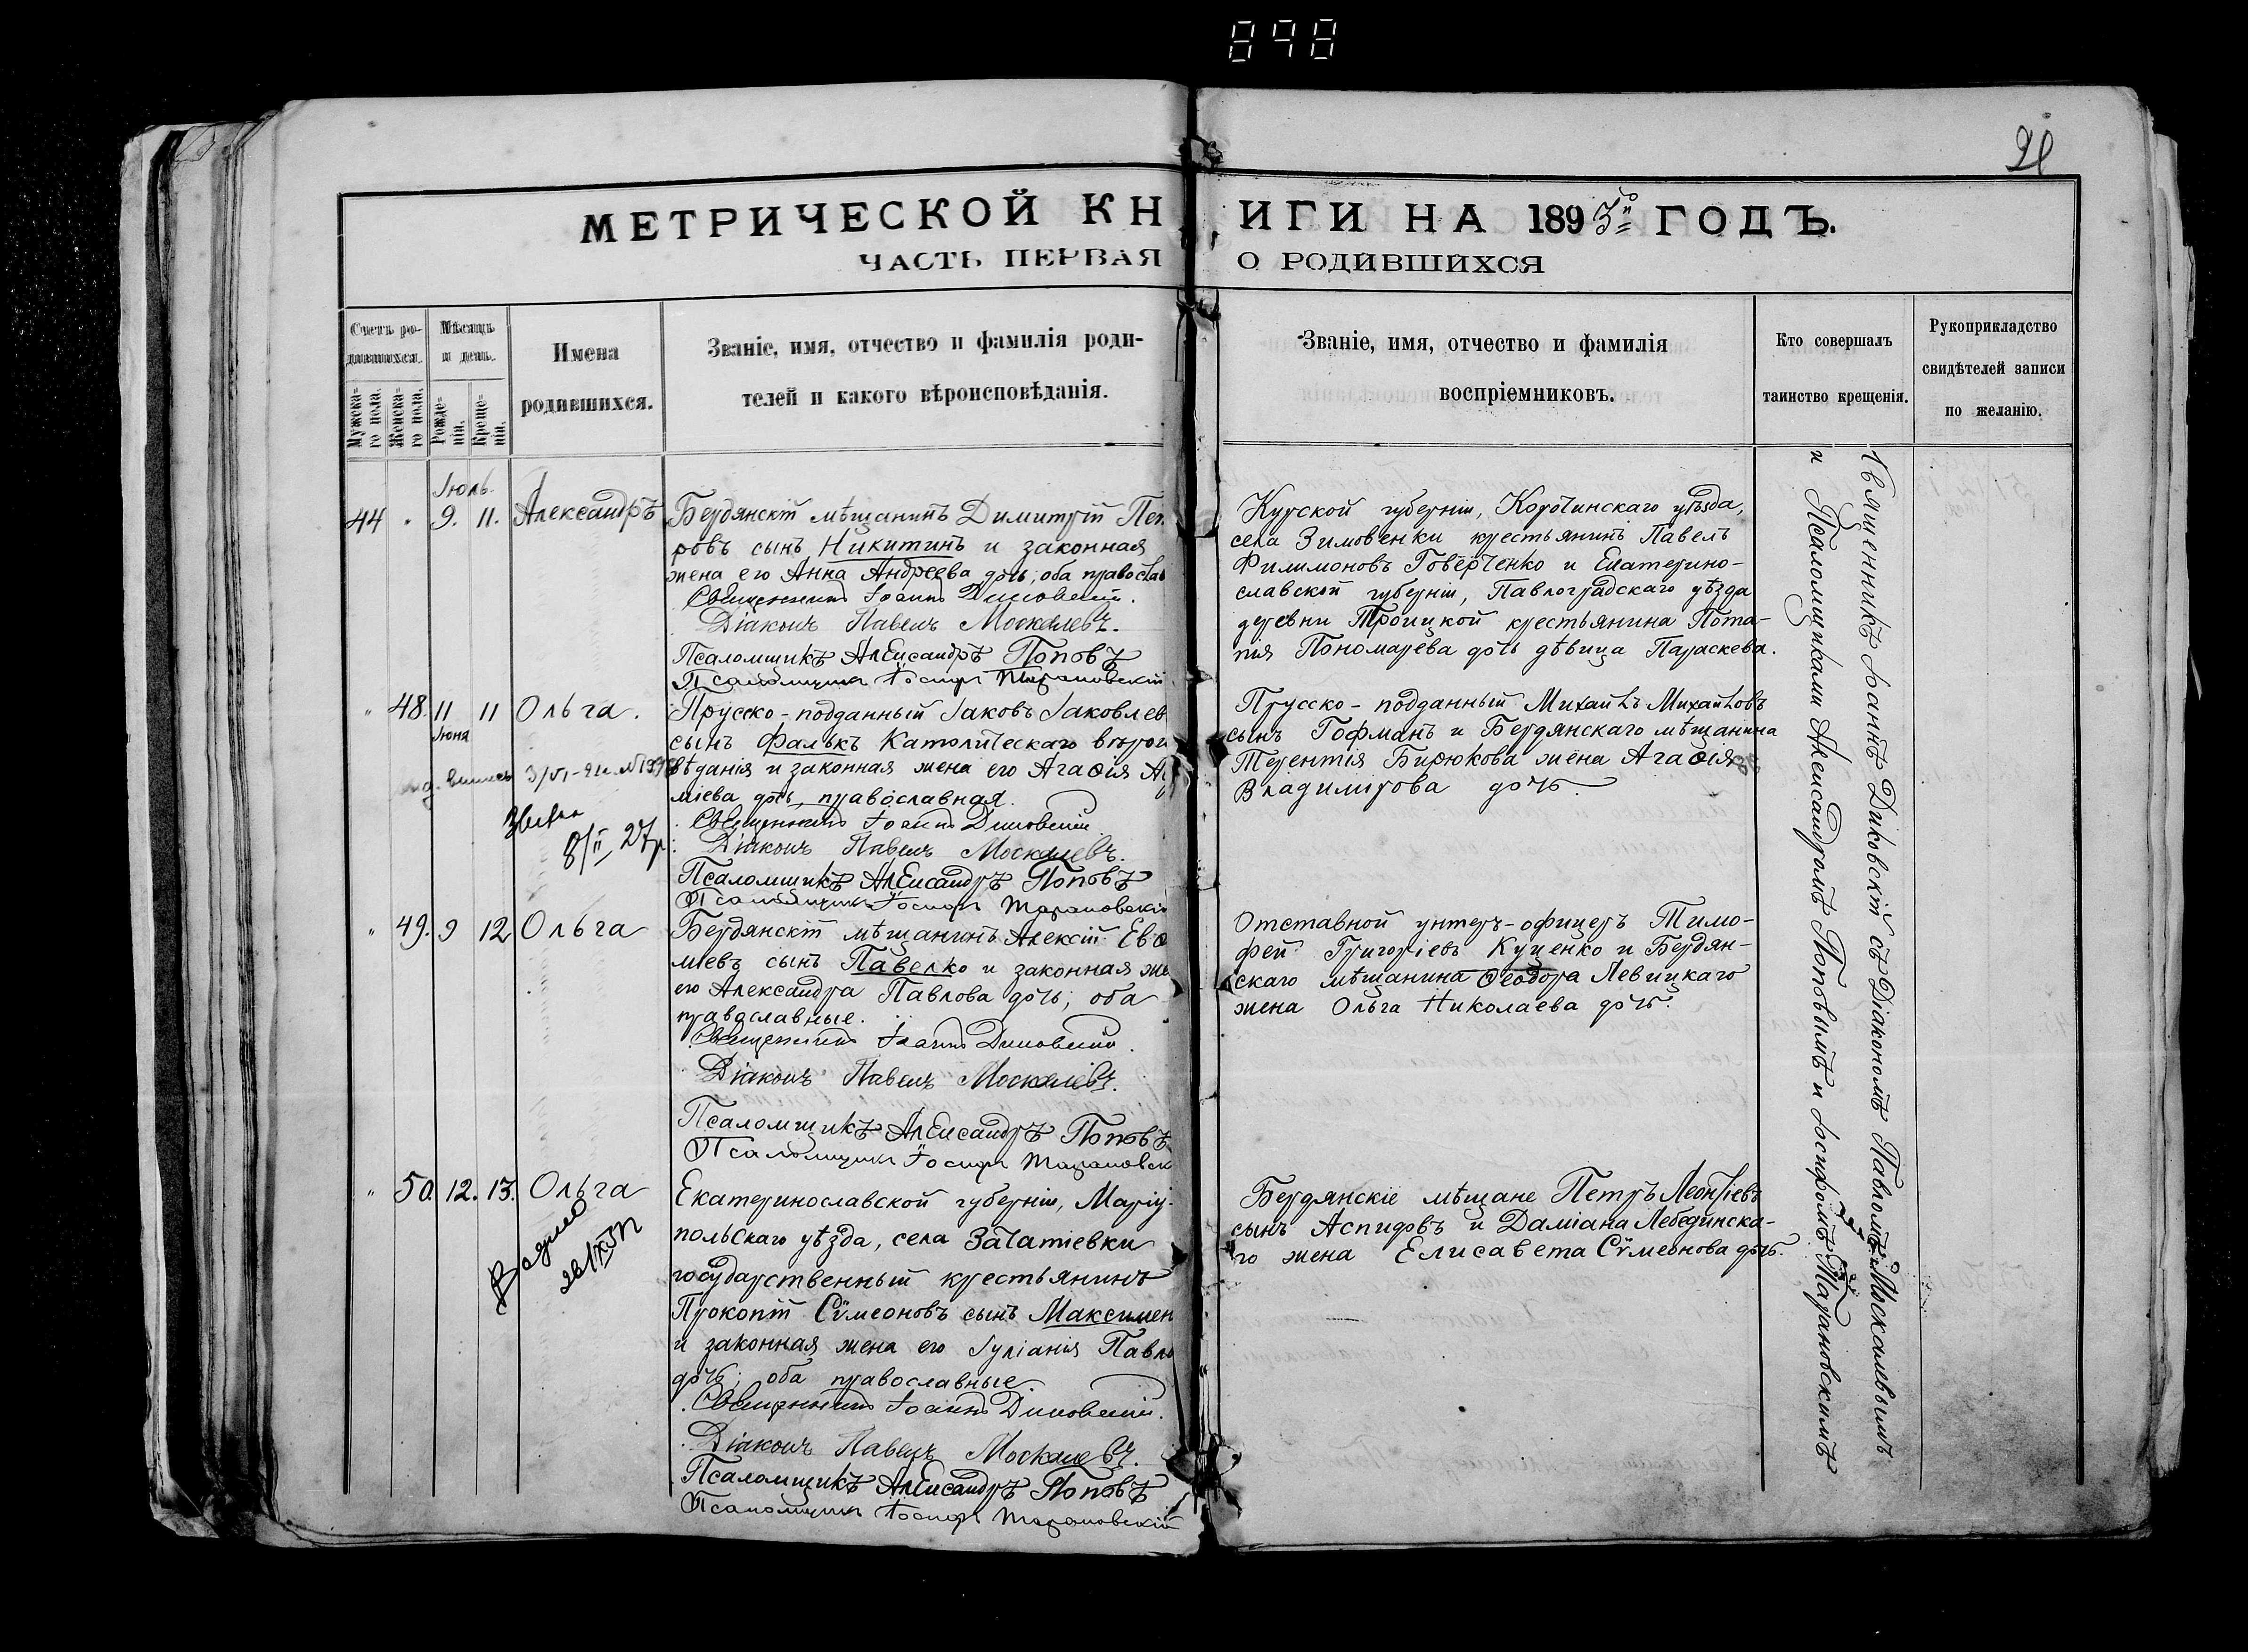 898
21
МЕТРИЧЕСКОЙ КНИГИ НА 1893й ГОДЪ.
ЧАСТЬ ПЕРВАЯ О РОДИВШИХСЯ
Счетъ ро-
дившихся.
Мужеска-
го пола.
Женска-
го пола.
Мѣсяцъ
и день.
Рожде-
нія.
Креще-
нія.
Имена
родившихся.
Званіе, имя, отчество и фамилія роди-
телей и какого вѣроисповѣданія.
Званіе, имя, отчество и фамилія
воспріемниковъ.
Кто совершалъ
таинство крещенія.
Рукоприкладство
свидѣтелей записи
по желанію.
Іюль.
44 " 9. 11. Александръ
Бердянскій мѣщанинъ Димитрій Пет
ровъ сынъ Никитинъ и законная
жена его Анна Андреева дочь; оба православ
Священникъ Іоаннъ Диковскій.
Діаконъ Павелъ Москалевъ.
Псаломщикъ Александръ Поповъ
Псаломщикъ Іосифъ Тарановскій
Курской губерніи, Корочинскаго уѣзда,
села Зимовенки крестьянинъ Павелъ
Филимоновъ Говёрченко и Екатерино-
славской губерніи, Павлоградскаго уѣзда
деревни Троицкой крестьянина Пота-
пія Пономарева дочь дѣвица Параскева.
" 48. 11 11 Ольга.
Іюня
Звѣрен
8/II 27р.
Прусско-подданный Іаковъ Іаковлев
сынъ Фалькъ Католическаго вѣрои
вѣданія и законная жена его Агаѳія
міева дочь, православная.
Священникъ Іоаннъ Диковскій
Діаконъ Павелъ Москалевъ.
Псаломщикъ Александръ Поповъ
Псаломщикъ Іосифъ Тарановскій
Прусско-подданный Михаилъ Михаиловъ
сынъ Гофманъ и Бердянскаго мѣщанина
Терентія Бирюкова жена Агаѳія
Владимірова дочь.
" 49. 9 12 Ольга
Бердянскій мѣщанинъ Алексій Евѳ
міевъ сынъ Павелко и законная же
его Александра Павлова дочь; оба
православные.
Священникъ Іоаннъ Диковскій.
Діаконъ Павелъ Москалевъ.
Псаломщикъ Александръ Поповъ
Псаломщикъ Іосифъ Тарановск
Отставной унтеръ-офицеръ Тимо-
фей Григоріевъ Куценко и Бердян-
скаго мѣщанина Ѳеодора Левицкаго
жена Ольга Николаева дочь.
" 50. 12. 13. Ольга
Екатеринославской губерніи, Маріу-
польскаго уѣзда, села Зачатіевки
государственный крестьянинъ
Прокопій Сѵмеоновъ сынъ Максимен
и законная жена его Іуліанія Павло
дочь; оба православные.
Священникъ Іоаннъ Диковскій.
Діаконъ Павелъ Москалевъ.
Псаломщикъ Александръ Поповъ
Псаломщикъ Іосифъ Тарановскій
Бердянскіе мѣщане Петръ Леонтіевъ
сынъ Аспидовъ и Даміана Лебединска-
го жена Елисавета Сѵмеонова дочь.
Священникъ Іоаннъ Диковскій съ Діакономъ Павломъ Москалевымъ
и Псаломщиками Александромъ Поповымъ и Іосифомъ Тарановскимъ